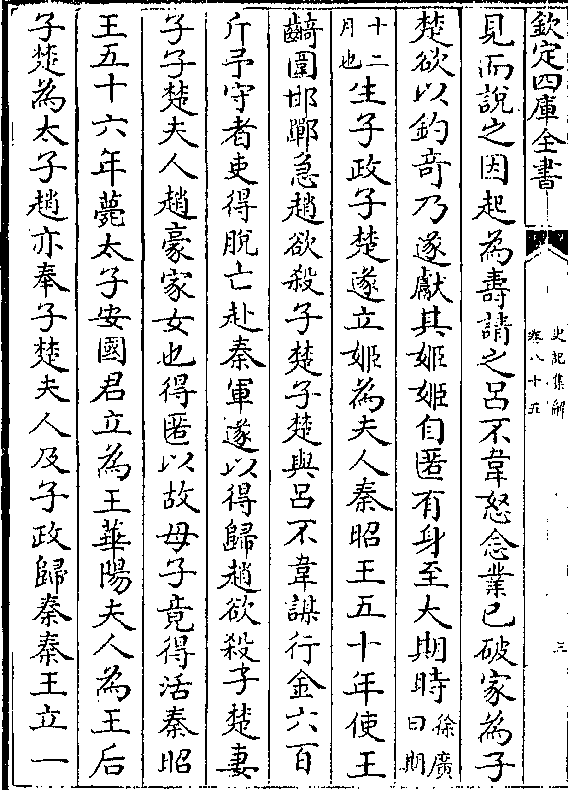 欽定四庫全書
史記集解
卷八十五
三
見而說之因起為壽請之呂不韋怒念業已破家為子
楚欲以釣竒乃遂獻其姬姬自匿有身至大期時徐廣曰期
十二月也生子政子楚遂立姬為夫人秦昭王五十年使王
齮圍邯鄲急趙欲殺子楚子楚與呂不韋謀行金六百
斤予守者吏得脫亡赴秦軍遂以得歸趙欲殺子楚妻
子子楚夫人趙豪家女也得匿以故母子竟得活秦昭
王五十六年薨太子安國君立為王華陽夫人為王后
子楚為太子趙亦奉子楚夫人及子政歸秦秦王立一